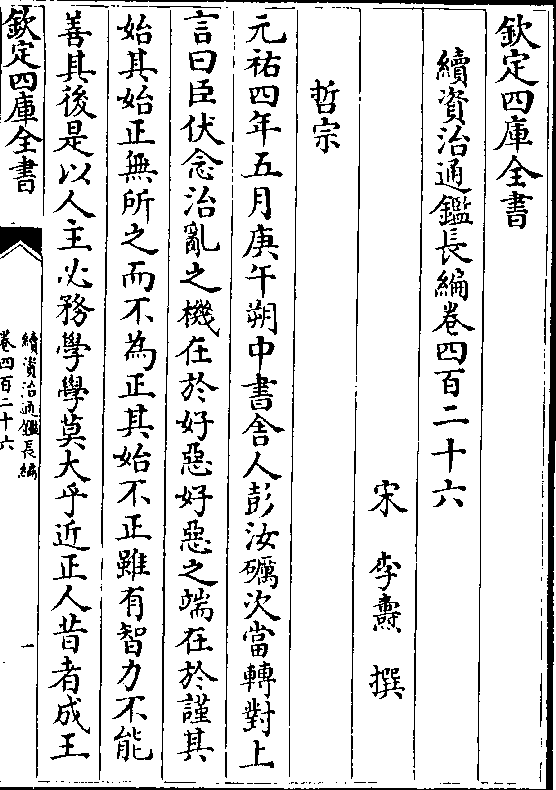 欽定四庫全書
續資治通鑑長編卷四百二十六
宋 李燾 撰
哲宗
元祐四年五月庚午朔中書舍人彭汝礪次當轉對上
言曰臣伏念治亂之機在於好惡好惡之端在於謹其
始其始正無所之而不為正其始不正雖有智力不能
善其後是以人主必務學學莫大乎近正人昔者成王
欽定四庫全書
續資治通鑑長編
卷四百二十六
一